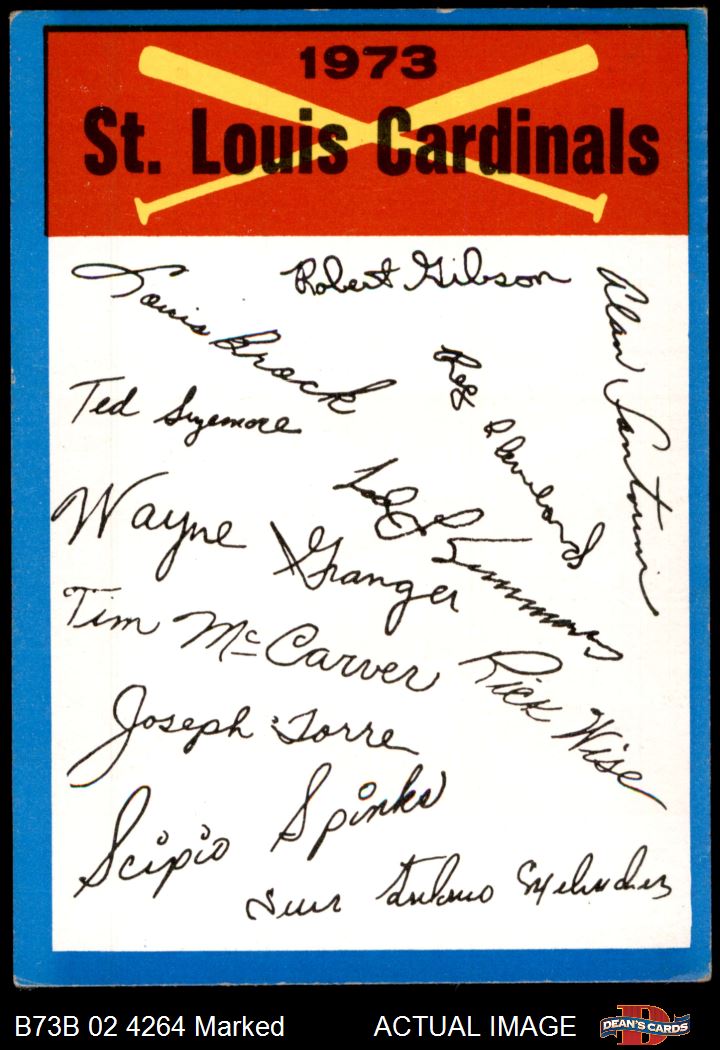 1973
St. Louis Cardinals
Robert Gibson
Louis Brock
Alan Santorini
Reg Cleveland
Ted Sizemore
Ted Simmons
Wayne Granger
Tim McCarver
Rick Wise
Joseph Torre
Scipio Spinks
Luis Antonio Melendez
B73B 02 4264 Marked
ACTUAL IMAGE
D
DEAN'S CARDS